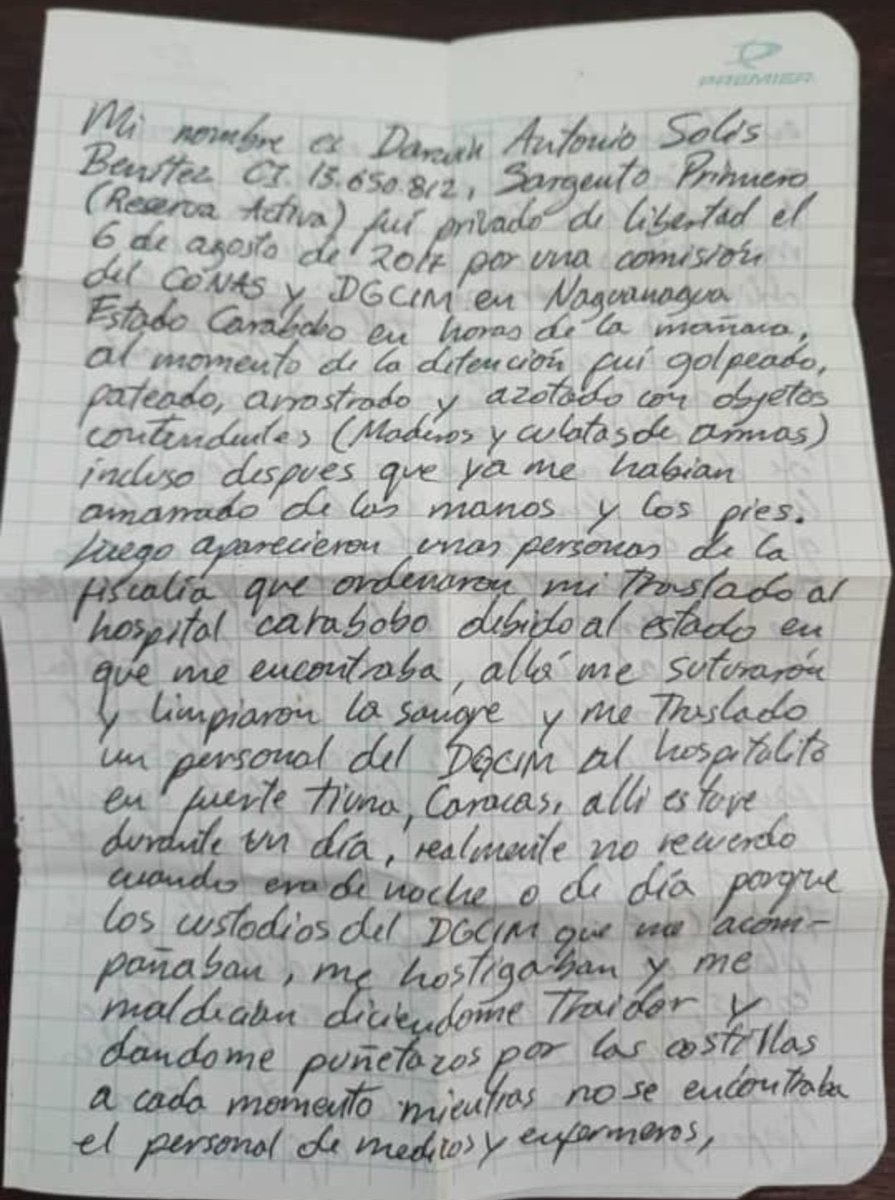 PREMIER
Mi nombre es Darwin Antonio Solis
Benitez CI. 15.650.812, Sargento Primero
(Reserva Activa) fuí privado de libertad el
6 de agosto de 2017 por una comisión
del CONAS y DGCIM en Naguanagua
Estado Carabobo en horas de la mañana,
al momento de la detención fuí golpeado,
pateado, arrastrado y azotado con objetos
contendentes (Maderos y culatas de armas)
incluso despues que ya me habian
amarrado de las manos y los pies.
Luego aparecieron unas personas de la
fiscalía que ordenaron mi Traslado al
hospital carabobo debido al estado en
que me encontraba, allá me suturarón
y limpiaron la sangre y me Traslado
un personal del DGCIM al hospitalito
en fuerte tiuna, Caracas, alli estuve
durante un día, realmente no recuerdo
cuando era de noche o de día porque
los custodios del DGCIM que me acom-
pañaban, me hostigaban y me
maldecian diciendome Traidor y
dandome puñetazos por las costillas
a cada momento mientras no se encontraba
el personal de medicos y enfermeros,